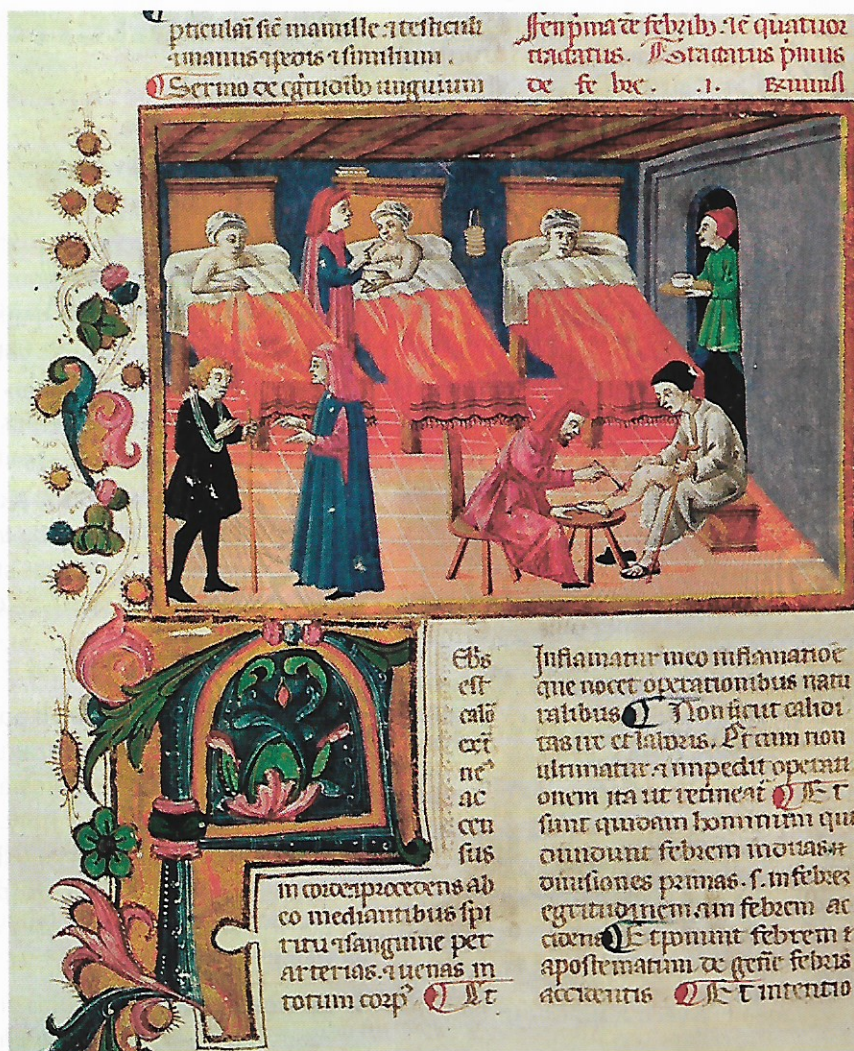 pticulaī sic̄ mamille ⁊ testiculi
⁊ manus ⁊ pedis ⁊ similium.
Sermo de egritudībꝫ unguium
Fen pͥma de febribꝫ. ⁊ ē quatuor
tractatus. Tractatus pͥmus
de febre. .1.
Ebͥs
est
calō
ext̄
neꝰ
ac
cen
sus
in corde ⁊ procedens ab
eo mediantibus spi
ritu ⁊ sanguine per
arterias. ⁊ uenas in
totum corpꝰ. Et
Inflamatur in eo inflamatiōe
que nocet operationibus natu
ralibus Non sicut calidi
tas ire et laboris. Et cum non
ultimatur. ⁊ impedit operati
onem ita ut retineat̄ Et
sunt quidam hominum qui
diuidunt febrem in duas
diuisiones primas. s. in febrem
egritudinem. ⁊ in febrem ac
cidens Et ponunt febrem
apostematum. de geñe febris
accidentis Et intentio